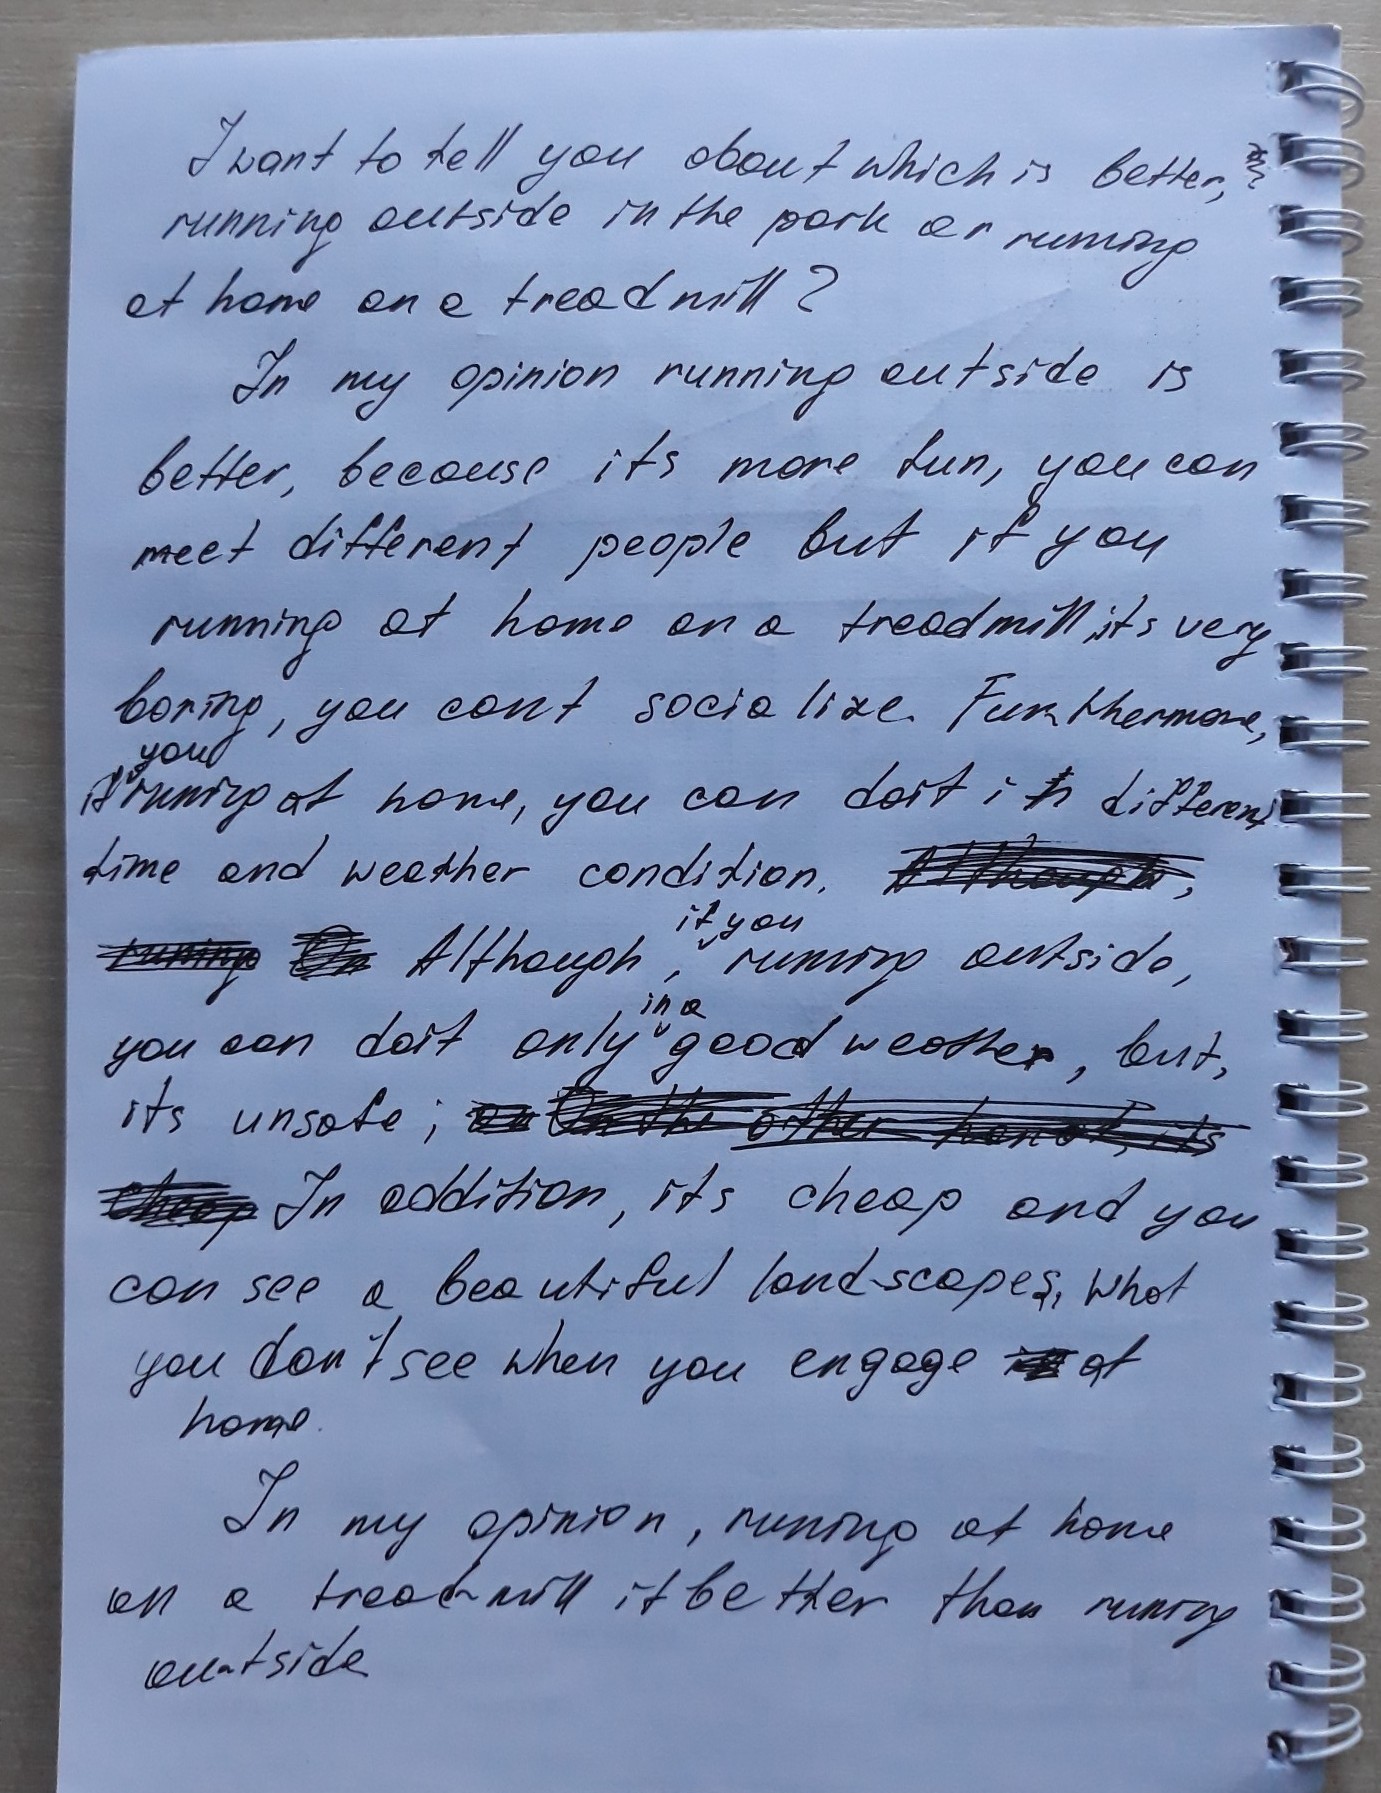 I want to tell you about which is better,
running outside in the park or running
at home on a treadmill?
In my opinion running outside is
better, because its more fun, you can
meet different people but if you
running at home on a treadmill, its very
boring, you can't socialize. Furthermore,
If you running at home, you can do it in different
time and weather condition.
Although, if you running outside,
you can do it only in a good weather, but,
its unsafe;
In addition, its cheap and you
can see a beautiful landscapes, what
you don't see when you engage at
home.
In my opinion, runing at home
on a treadmill it better than runing
outside